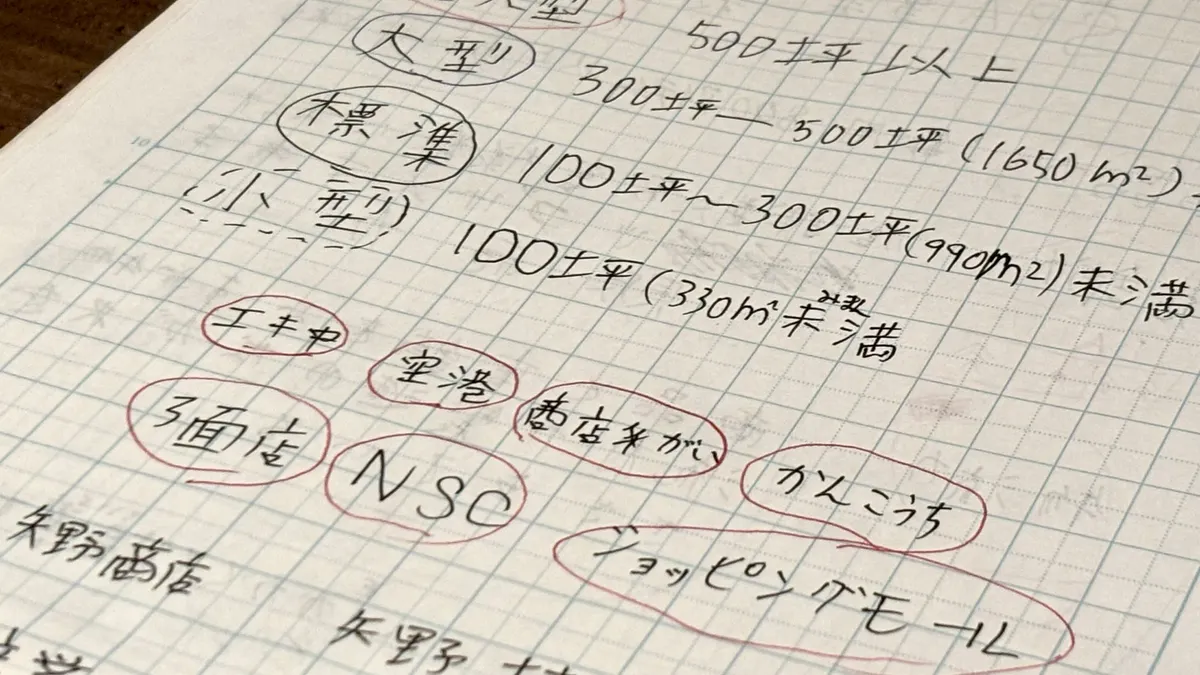 大型
500坪以上
大型
300坪〜500坪(1650m²)
標準
100坪〜300坪(990m²)未満
小型
100坪(330m²未満
みまん
エキ中
空港
商店手がい
かんこうち
3面店
NSC
ショッピングモール
矢野商店
矢野